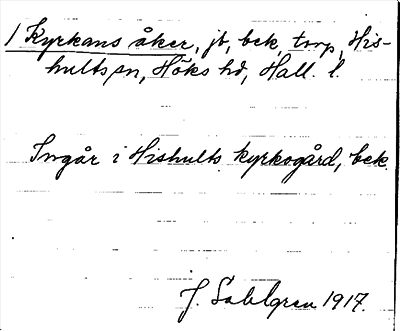 / Kyrkans åker, jb, bek, torp, His-
hults sn, Höks hd, Hall. l.
Ingår i Hishults kyrkogård, bek.
J. Sahlgren 1917.